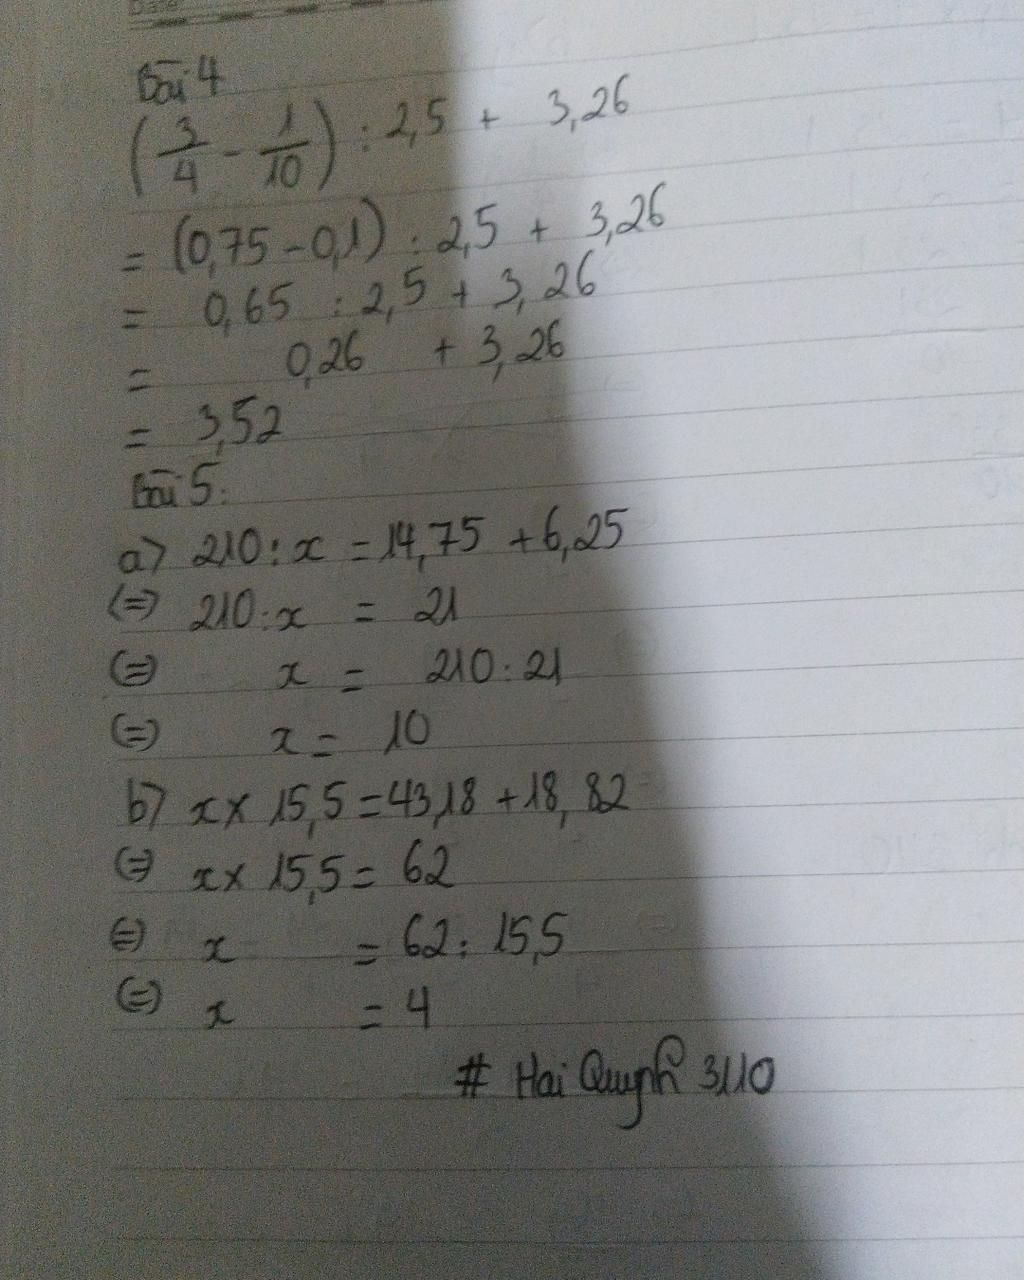 Date
Bài 4
(3/4 - 1/10) : 2,5 + 3,26
= (0,75 - 0,1) : 2,5 + 3,26
= 0,65 : 2,5 + 3,26
= 0,26 + 3,26
= 3,52
Bài 5:
a) 210 : x = 14,75 + 6,25
(=) 210 : x = 21
(=) x = 210 : 21
(=) x = 10
b) x × 15,5 = 43,18 + 18,82
(=) x × 15,5 = 62
(=) x = 62 : 15,5
(=) x = 4
# Hai Quynh 3110